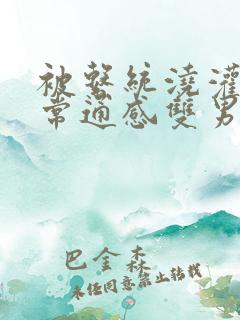 被繫統澆灌
常通感雙男
巴金森
未经同意禁止转载